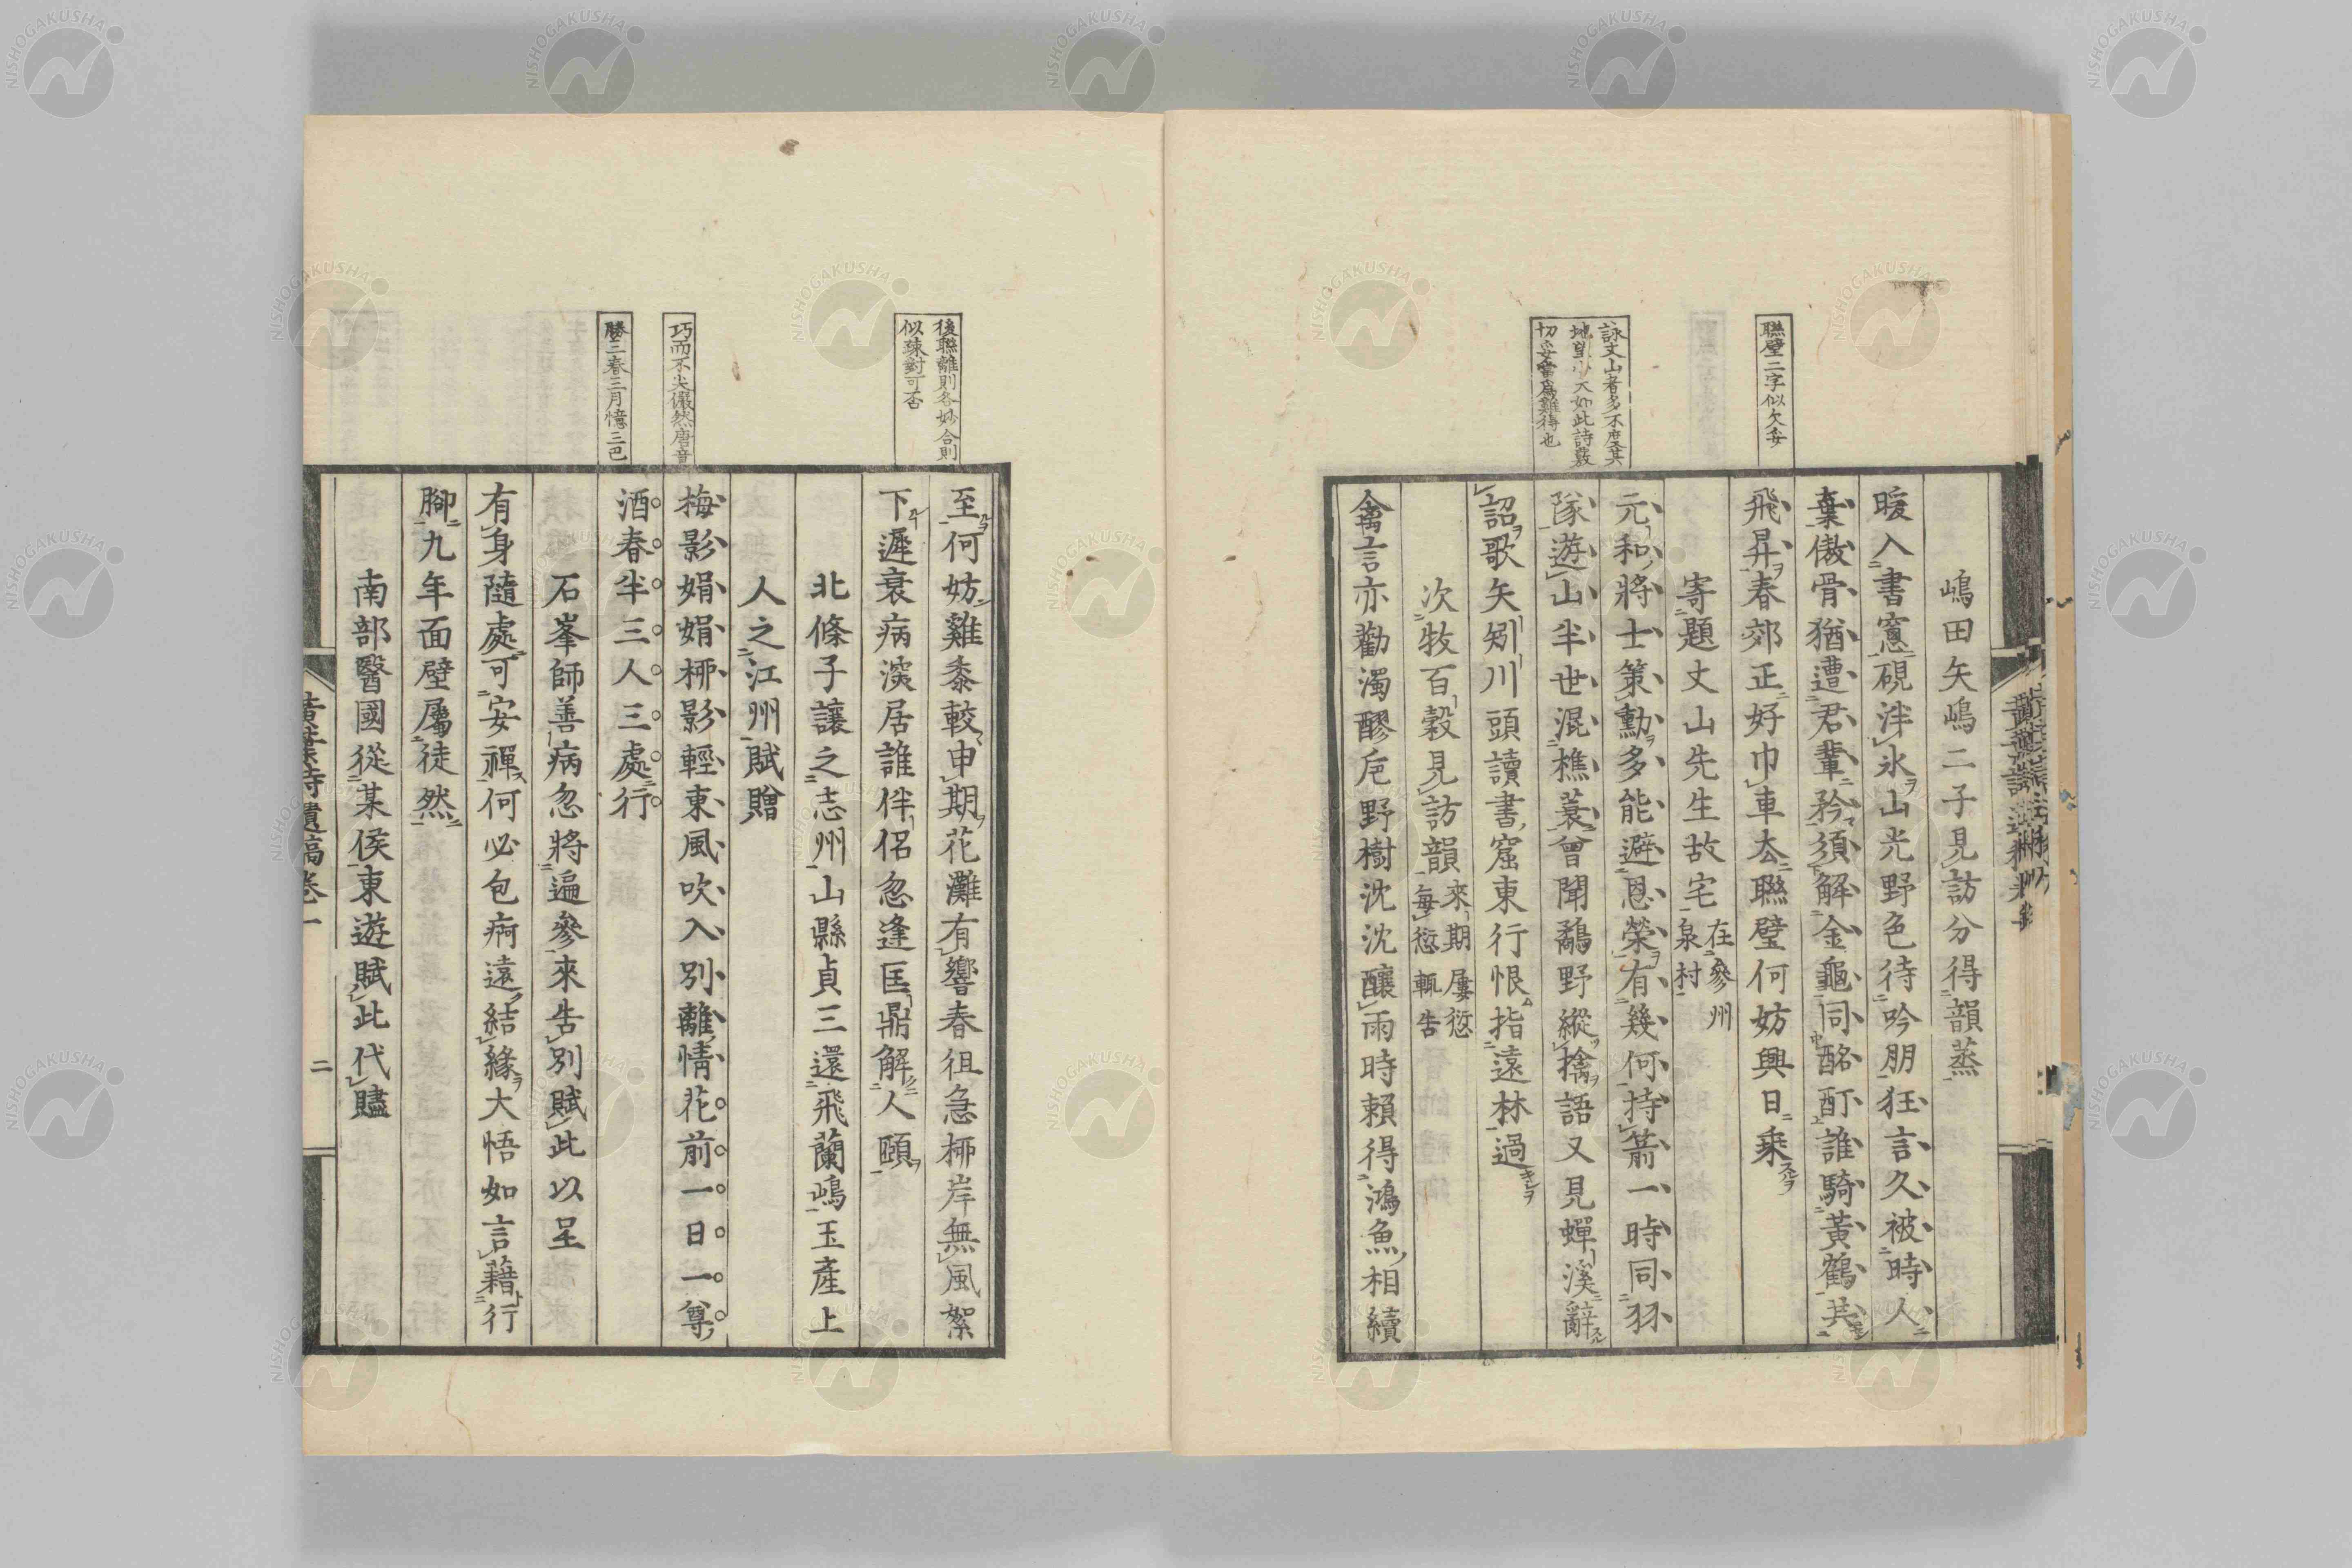 聯璧二字似欠妥
詠丈山者多不度其
切妥當爲難得也
嶋田矢嶋二子見訪分得韻蒸
暖入書窻硯泮氷山光野色待吟朋狂言久被時人
棄傲骨猶遭君輩矜須解金龜同酩酊誰騎黃鶴共
飛昇春郊正好巾車去聯璧何妨興日乘
寄題丈山先生故宅在參州泉村
元和將士策勳多能避恩榮有幾何持箭一時同羽
隊遊山半世混樵蓑曾聞鷸野縱擒語又見蟬溪辭
詔歌矢矧川頭讀書窟東行恨指遠林過
次牧百穀見訪韻來期屢愆每愆輒告
禽言亦勸濁醪巵野樹沈沈釀雨時賴得鴻魚相續
後聯離則各妙合則
似疎對可否
巧而不尖儼然唐音
勝三春三月憶三巴
至何妨雞黍較申期花灘有響春徂急桺岸無風絮
下遲衰病漢居誰伴侶忽逢匡鼎解人頤
北條子讓之志州山縣貞三還飛蘭嶋玉產上
人之江州賦贈
梅影娟娟桺影輕東風吹入別離情花前一日一尊
酒春半三人三處行
石峯師善病忽將遍參來告別賦此以呈
有身隨處可安禪何必包痾遠結緣大悟如言藉行
腳九年面壁屬徒然
南部醫國從某侯東遊賦此代贐
黃葉詩遺稿卷一
二